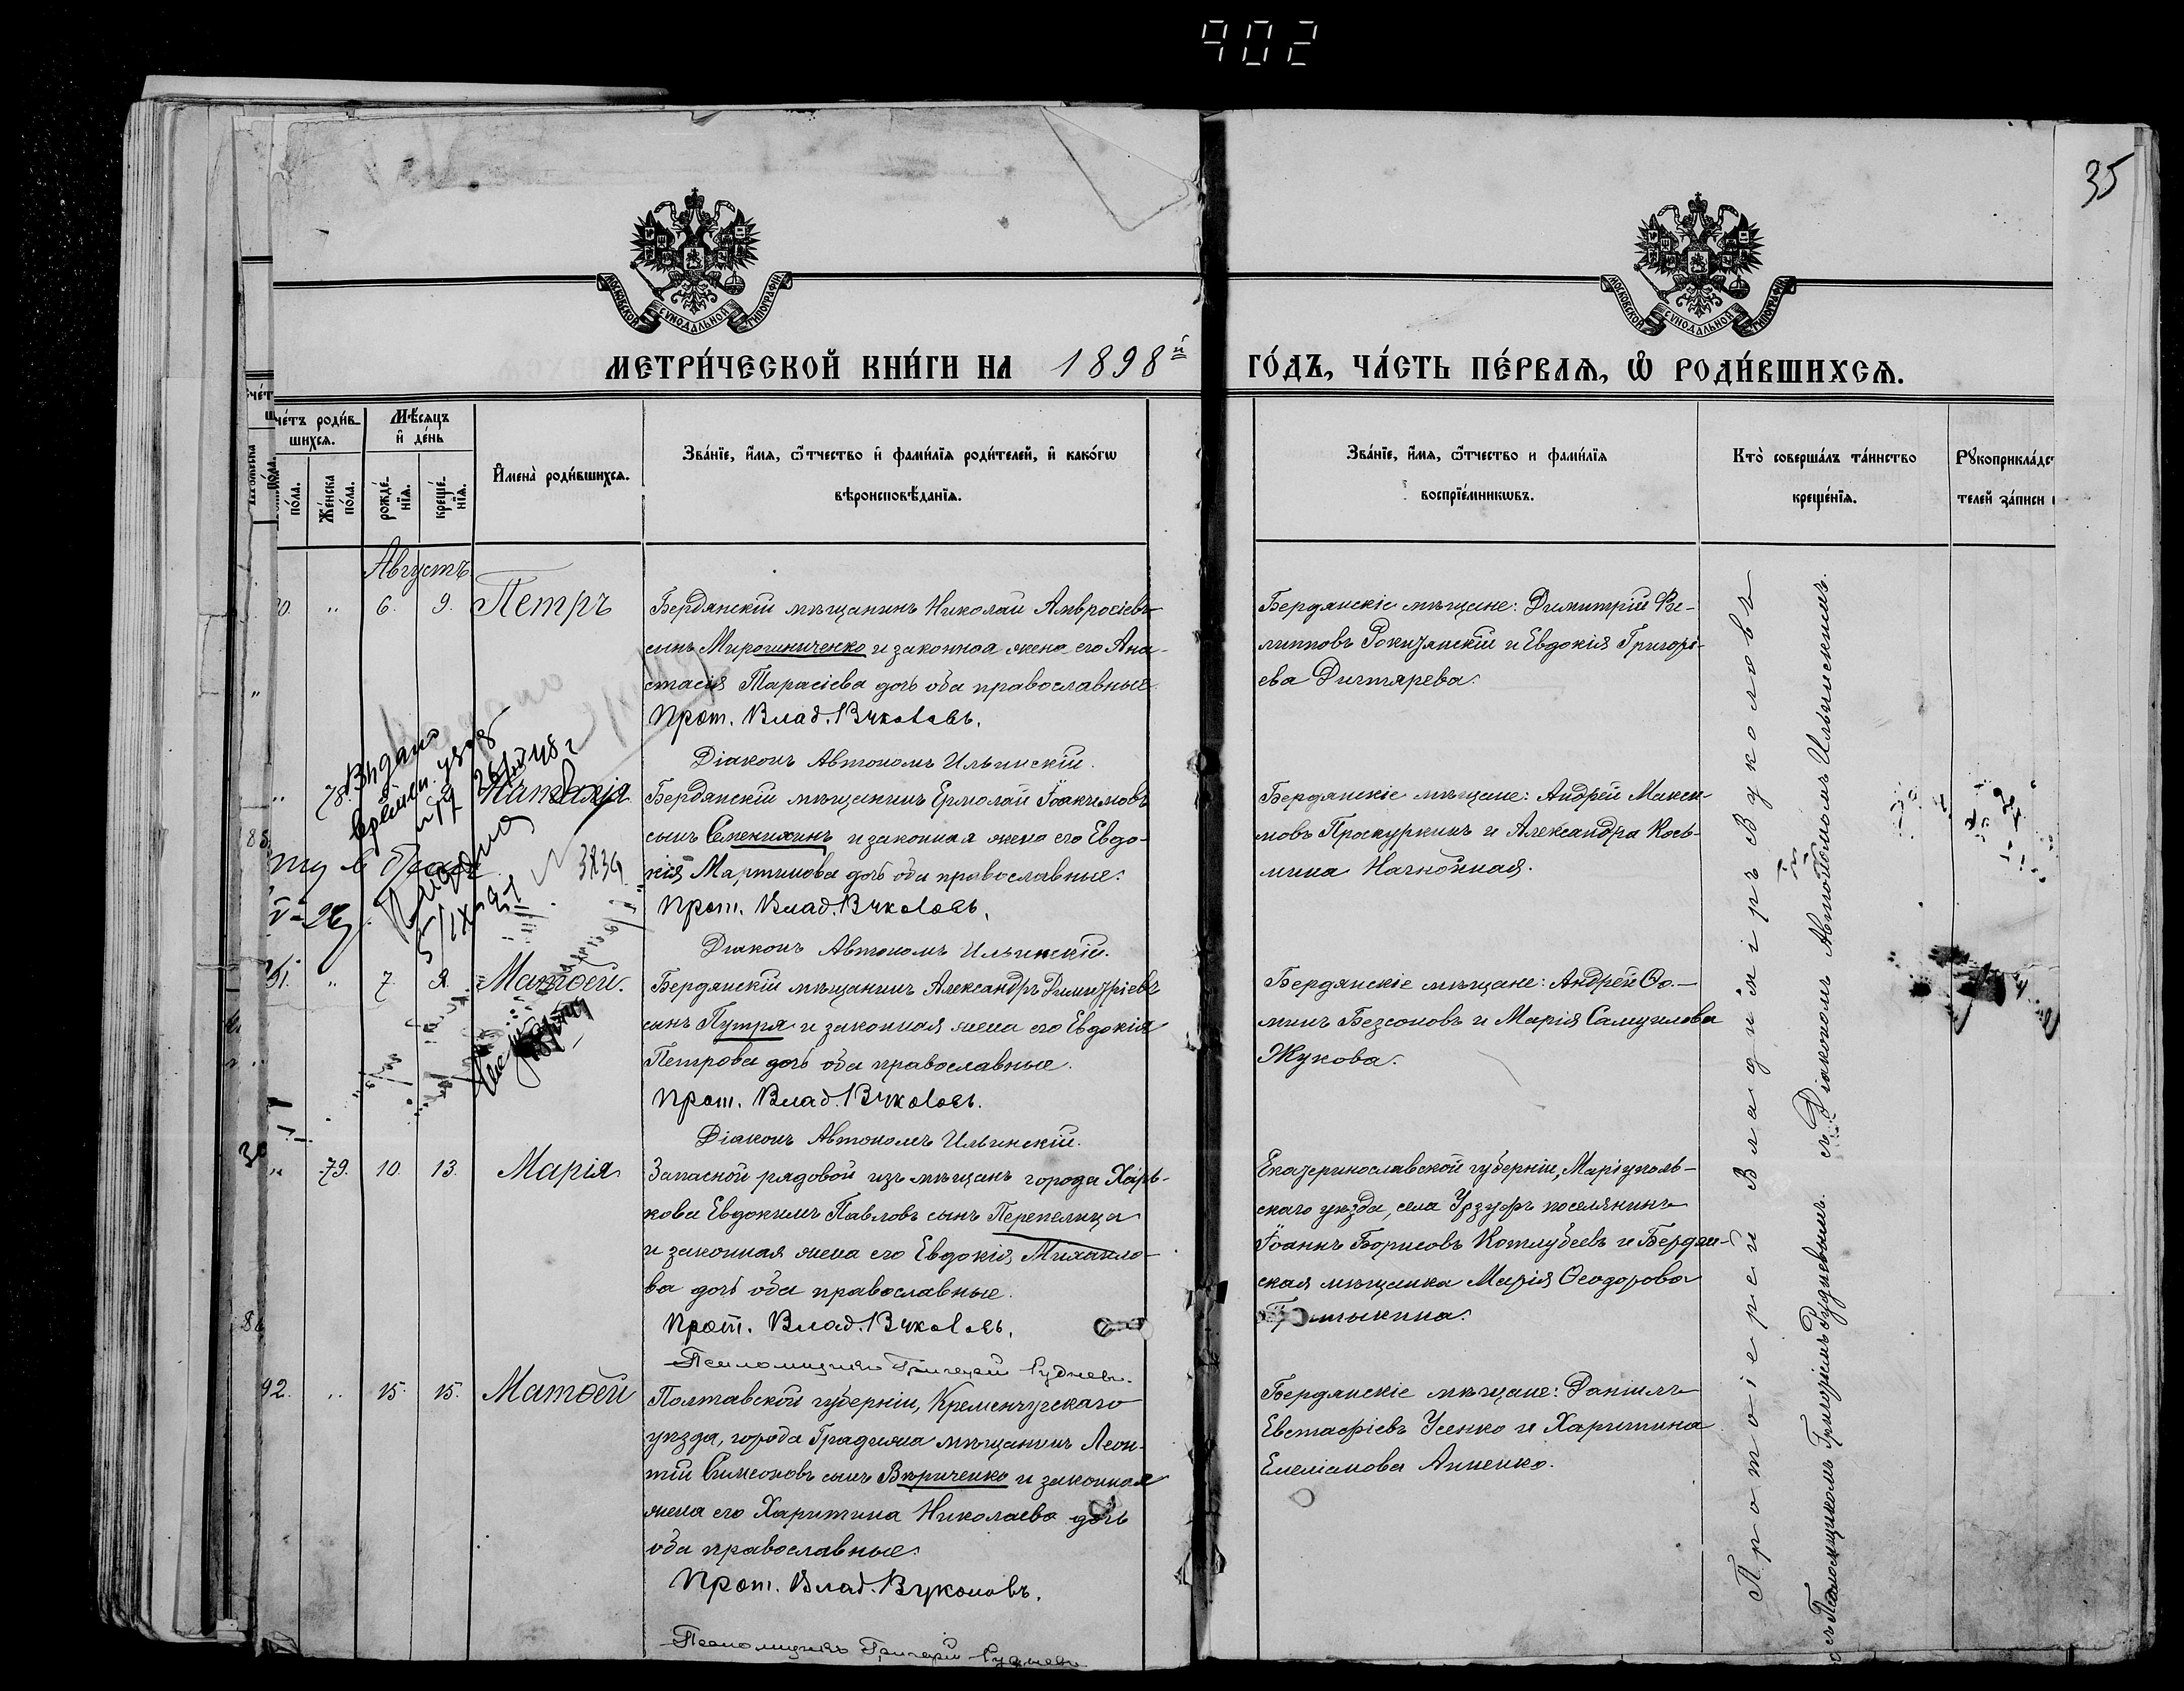 902
35
МОСКОВСКОЙ СѴНОДАЛЬНОЙ ТИПОГРАФІИ
МОСКОВСКОЙ СѴНОДАЛЬНОЙ ТИПОГРАФІИ
МЕТРИ́ЧЕСКОЙ КНИ́ГИ НА 1898й
ГО́ДЪ, ЧА́СТЬ ПЕ́РВАѦ, Ѡ РОДИ́ВШИХСѦ.
че́тъ роди́в-
шихсѧ.
по́ла.
Же́нска
по́ла.
Мѣ́сѧцъ
и҆ де́нь
рожде́-
нїѧ.
креще́-
нїѧ.
И҆мена̀ роди́вшихсѧ.
Зва́нїе, и҆́мѧ, ѻ҆́тчество и҆ фами́лїѧ роди́телей, и҆ како́гѡ
вѣроисповѣ́данїѧ.
Зва́нїе, и҆́мѧ, ѻ҆́тчество и фами́лїѧ
воспрїе́мникѡвъ.
Кто̀ соверша́лъ та́инство
креще́нїѧ.
Рꙋкоприкла́дс
телей за́писи
Августъ
" 6. 9. Петръ
Бердянскій мѣщанинъ Николай Амвросіевъ
сынъ Мирошниченко и законная жена его Ана-
стасія Тарасіева дочь оба православные
Прот. Влад. Вуколовъ.
Діаконъ Автономъ Ильинскій.
Бердянскіе мѣщане: Димитрій Фи-
липповъ Рокизянскій и Евдокія Григорі-
ева Дигтярева.
" 78. Наталія
Выдано
времен.
5/IX
3834
Бердянскій мѣщанинъ Ермолай Іоакимовъ
сынъ Семенихинъ и законная жена его Евдо-
кія Мартинова дочь оба православные.
Прот. Влад. Вуколовъ.
Діаконъ Автономъ Ильинскій.
Бердянскіе мѣщане: Андрей Макси-
мовъ Проскуркинъ и Александра Кось-
мина
91. " 7. 9. Матѳей.
Бердянскій мѣщанинъ Александръ Димитріевъ
сынъ Путря и законная жена его Евдокія
Петрова дочь оба православные.
Прот. Влад. Вуколовъ.
Діаконъ Автономъ Ильинскій.
Бердянскіе мѣщане: Андрей Ѳо-
минъ Безсоновъ и Марія Самуилова
Жукова.
" 79. 10. 13. Марія
Запасной рядовой изъ мѣщанъ города Харь-
кова Евдокимъ Павловъ сынъ Перепелица
и законная жена его Евдокія Михайло-
ва дочь оба православные.
Прот. Влад. Вуколовъ.
Псаломщикъ Григорій Рудневъ.
Екатеринославской губерніи, Маріуполь-
скаго уѣзда, села Урзуфъ поселянинъ
Іоаннъ Борисовъ Котлубеевъ и Бердян-
ская мѣщанка Марія Ѳеодорова
92. " 15. 15. Матѳей
Полтавской губерніи, Кременчугскаго
уѣзда, города Градижа мѣщанинъ Леон-
тій Симеоновъ сынъ Вириченко и законная
жена его Харитина Николаева дочь
оба православные.
Прот. Влад. Вуколовъ.
Псаломщикъ Григорій Рудневъ
Бердянскіе мѣщане: Даніилъ
Евстафіевъ Усенко и Харитина
Емеліанова Анненко.
Протоіерей Владиміръ Вуколовъ
съ Діакономъ Автономомъ Ильинскимъ.
съ Псаломщикомъ Григоріемъ Рудневымъ.